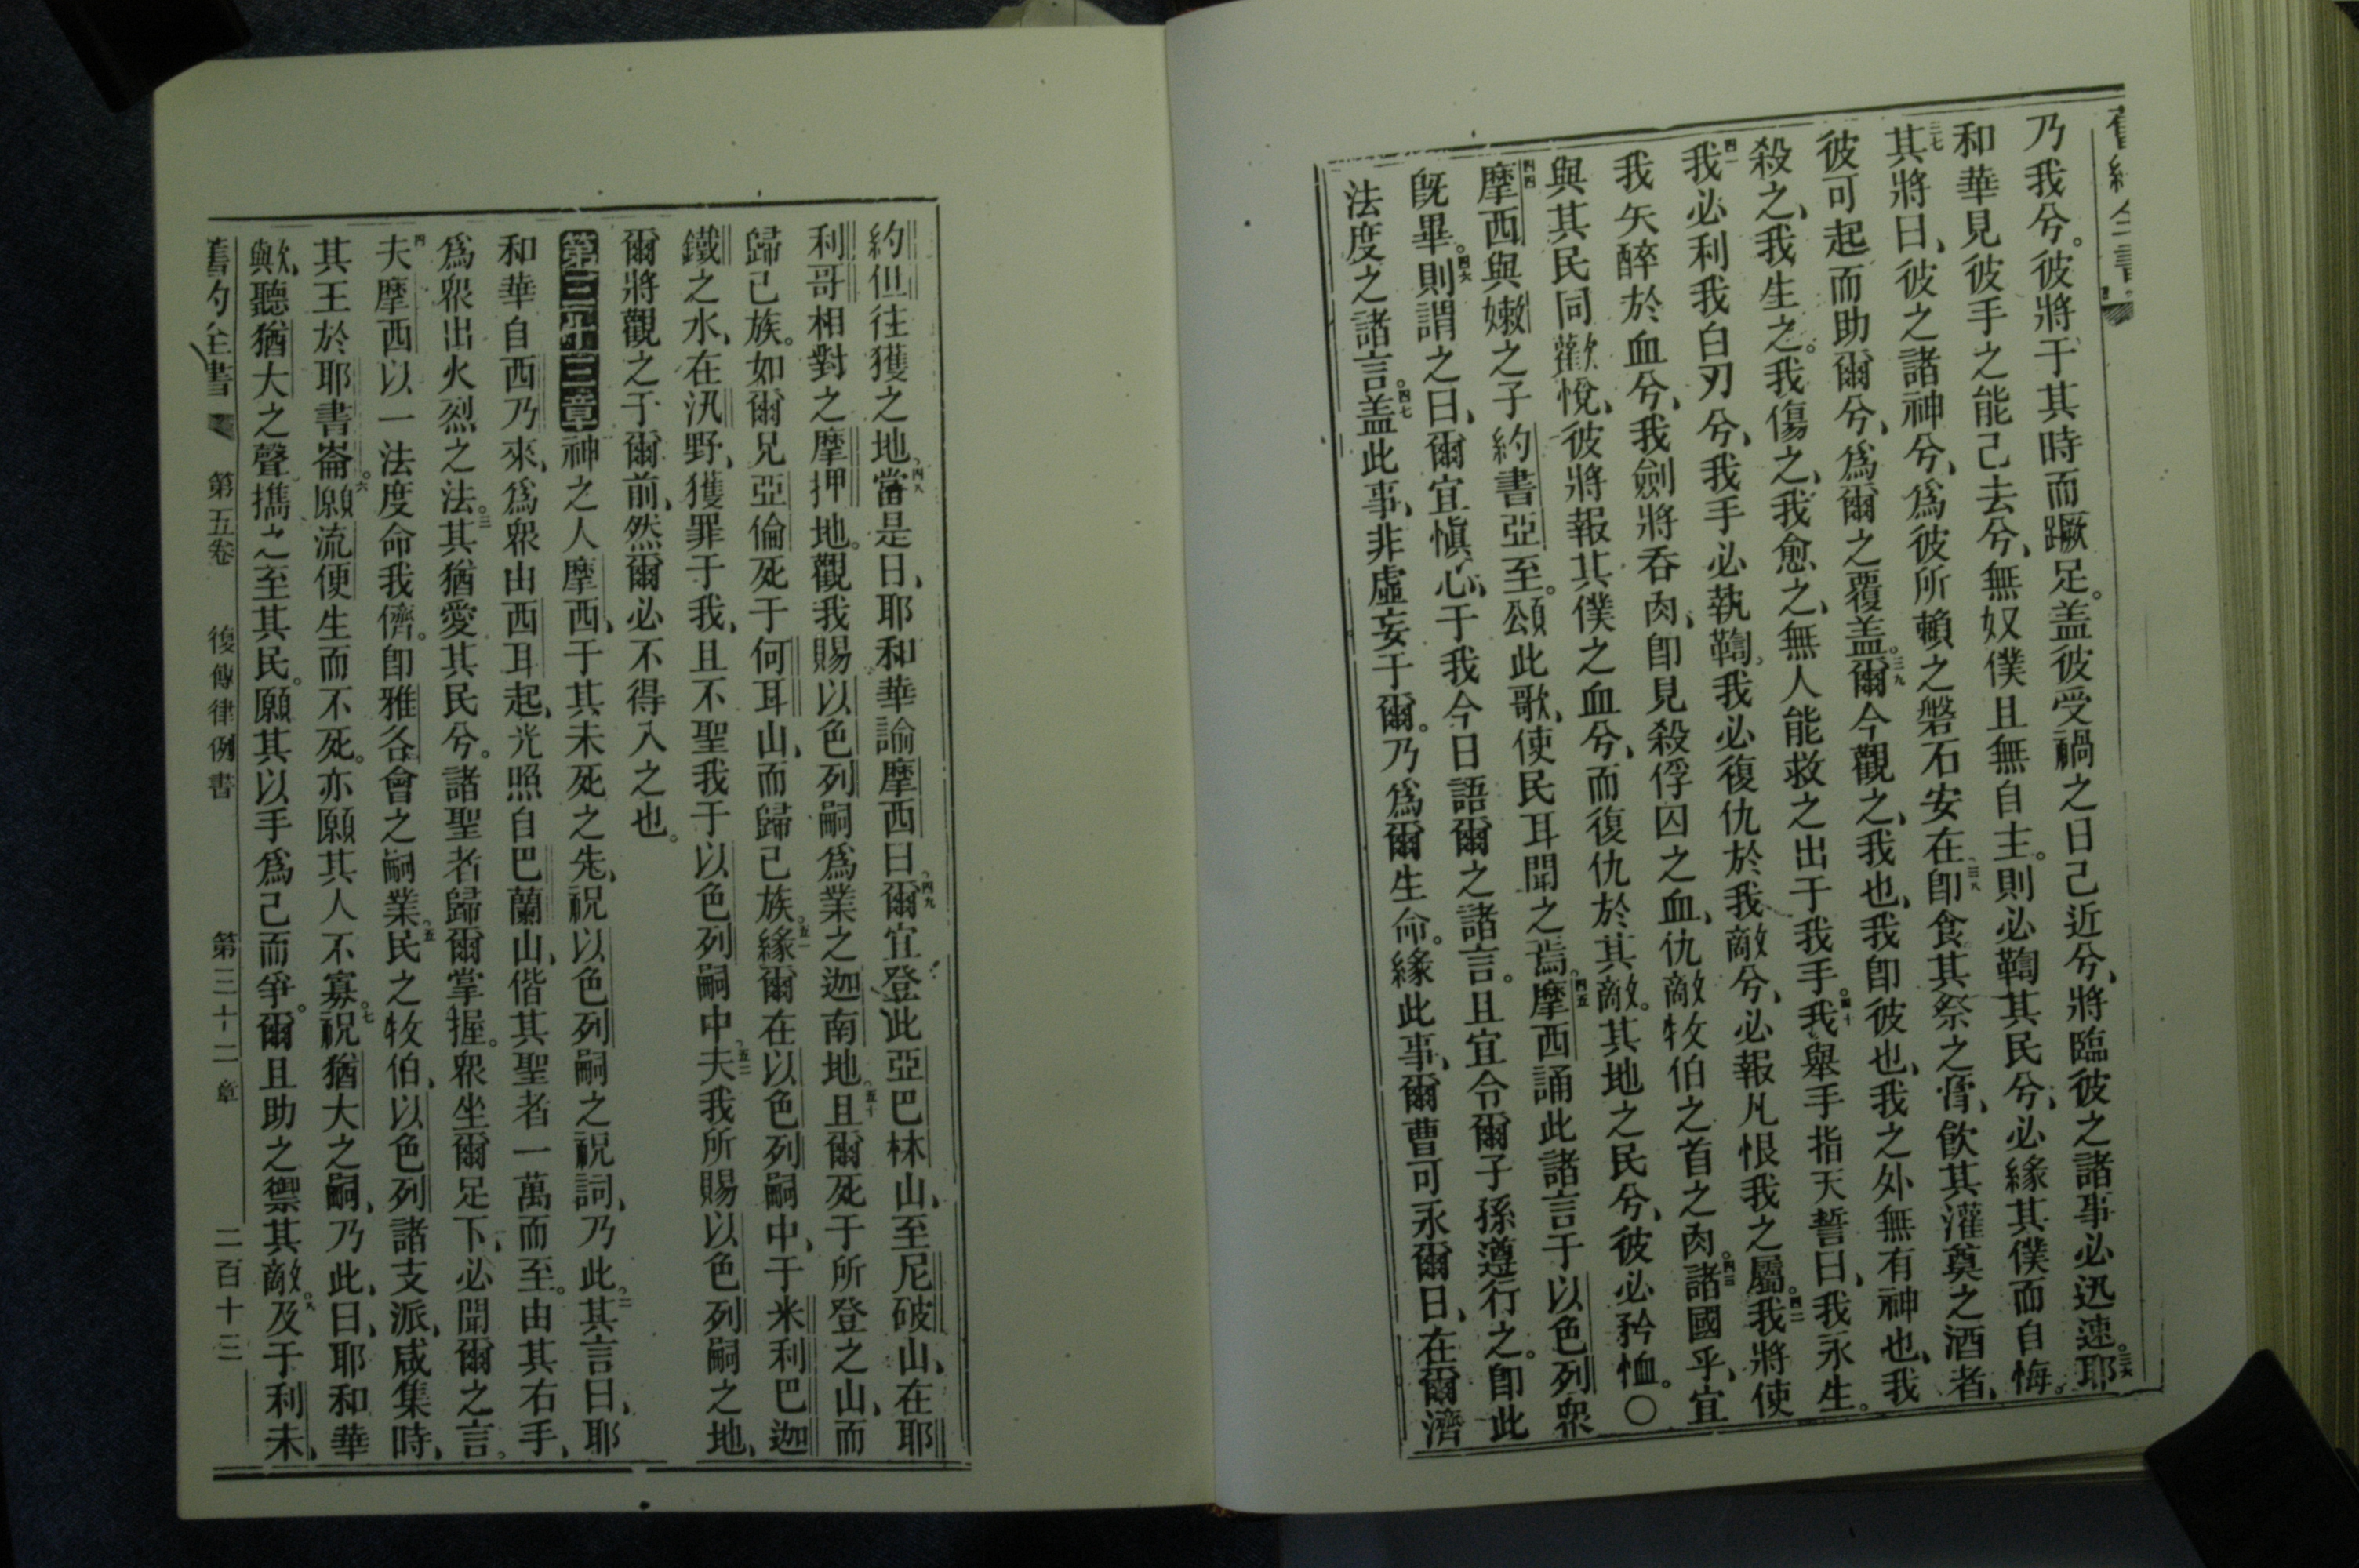 乃我兮。彼將于其時而蹶足。盖彼受禍之日己近兮、將臨彼之諸事必迅速。耶
和華見彼手之能己去兮、無奴僕且無自主。則必鞫其民兮、必緣其僕而自悔。
三七其將曰、彼之諸神兮、爲彼所賴之磐石安在、三八卽食其祭之膏、飮其灌奠之酒者、
彼可起而助爾兮、爲爾之覆盖。三九爾今觀之、我也、我卽彼也、我之外無有神也、我
殺之、我生之。我傷之、我愈之、無人能救之出于我手。四十我舉手指天誓曰、我永生。
四一我必利我白刃兮、我手必執鞫。我必復仇於我敵兮、必報凡恨我之屬。四二我將使
我矢醉於血兮、我劍將吞肉、卽見殺俘囚之血、仇敵牧伯之首之肉。四三諸國乎、宜
與其民同歡悅、彼將報其僕之血兮、而復仇於其敵。其地之民兮、彼必矜恤。〇
四四摩西與嫩之子約書亞至。頌此歌、使民耳聞之焉。四五摩西誦此諸言于以色列衆
旣畢。四六則謂之曰、爾宜愼心、于我今日語爾之諸言。且宜令爾子孫遵行之。卽此
法度之諸言。四七盖此事、非虛妄于爾。乃爲爾生命。緣此事、爾曹可永爾日、在爾濟
約但往獲之地。四八當是日、耶和華諭摩西曰、四九爾宜登此亞巴林山、至尼破山、在耶
利哥相對之摩押地。觀我賜以色列嗣爲業之迦南地、五十且爾死于所登之山、而
歸己族。如爾兄亞倫死于何耳山、而歸己族。五一緣爾在以色列嗣中、于米利巴迦
鐵之水、在汛野、獲罪于我、且不聖我于以色列嗣中、五二夫我所賜以色列嗣之地、
爾將觀之于爾前、然爾必不得入之也。
第三十三章神之人摩西、于其未死之先、祝以色列嗣之祝詞、乃此。二其言曰、耶
和華自西乃來、爲衆由西耳起、光照自巴蘭山、偕其聖者一萬而至。由其右手、
爲衆出火烈之法。三其猶愛其民兮。諸聖者歸爾掌握。衆坐爾足下、必聞爾之言。
四夫摩西以一法度命我儕。卽雅各會之嗣業、五民之牧伯、以色列諸支派、咸集時、
其王於耶書崙。六願流便生而不死。亦願其人不寡。七祝猶大之嗣、乃此、曰、耶和華
歟、聽猶大之聲、攜之至其民。願其以手爲己而爭。爾且助之禦其敵。八及于利未、
舊約全書 第五卷 復傳律例書 第三十二章 二百十三